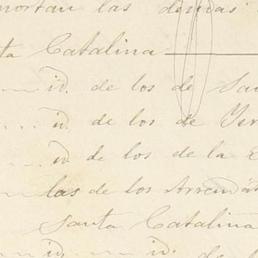 importan las deudas
ta Catalina
id. de los de San
id. de los de Yer
id de los de la E
las de los Arrenda
Santa Catalina
id. id. de